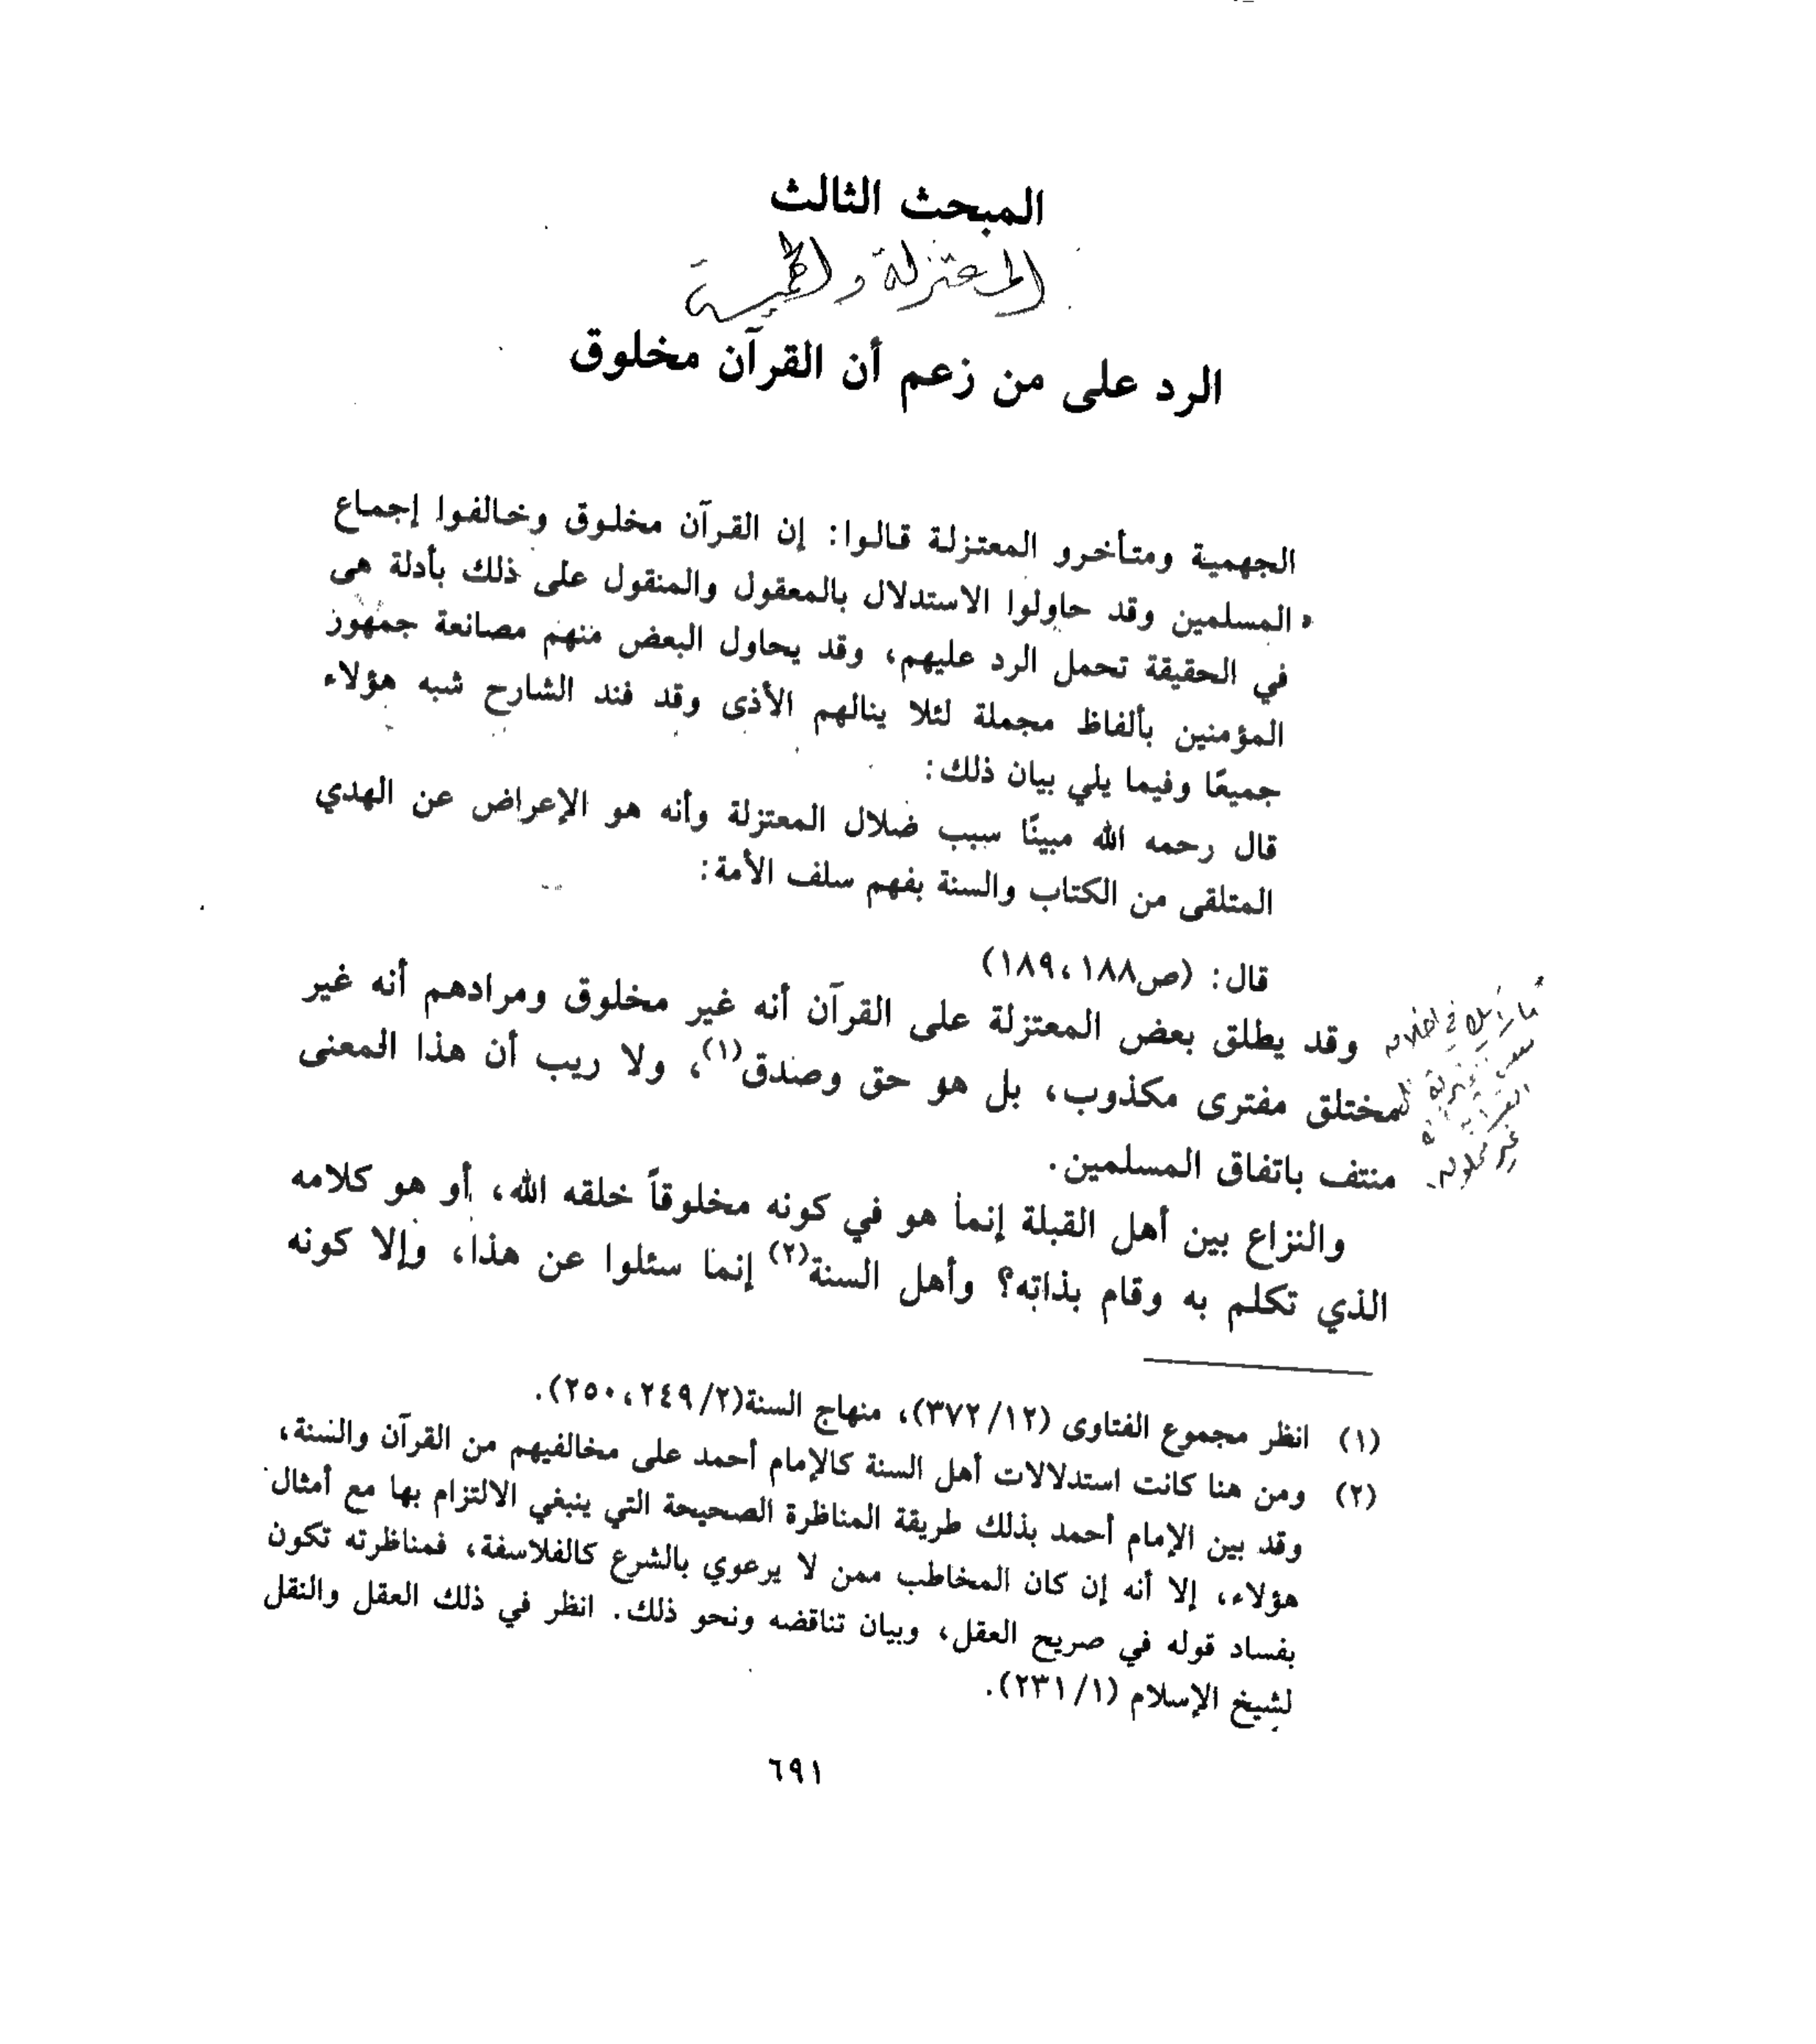 المبحث الثالث
المعتزلة والجهمية
الرد على من زعم أن القرآن مخلوق
الجهمية ومتأخرو المعتزلة قالوا: إن القرآن مخلوق وخالفوا إجماع
المسلمين وقد حاولوا الاستدلال بالمعقول والمنقول على ذلك بأدلة هى
في الحقيقة تحمل الرد عليهم، وقد يحاول البعض منهم مصانعة جمهور
المؤمنين بألفاظ مجملة لئلا ينالهم الأذى وقد فند الشارح شبه هؤلاء
جميعًا وفيما يلي بيان ذلك:
قال رحمه الله مبينًا سبب ضلال المعتزلة وأنه هو الإعراض عن الهدي
المتلقى من الكتاب والسنة بفهم سلف الأمة:
قال: (ص١٨٨، ١٨٩)
وقد يطلق بعض المعتزلة على القرآن أنه غير مخلوق ومرادهم أنه غير
مختلق مفترى مكذوب، بل هو حق وصدق(١)، ولا ريب أن هذا المعنى
منتف باتفاق المسلمين.
والنزاع بين أهل القبلة إنما هو في كونه مخلوقاً خلقه الله، أو هو كلامه
الذي تكلم به وقام بذاته؟ وأهل السنة(٢) إنما سئلوا عن هذا، وإلا كونه
(١) انظر مجموع الفتاوى (٣٧٢/١٢)، منهاج السنة(٢٤٩/٢، ٢٥٠).
(٢) ومن هنا كانت استدلالات أهل السنة كالإمام أحمد على مخالفيهم من القرآن والسنة،
وقد بين الإمام أحمد بذلك طريقة المناظرة الصحيحة التي ينبغي الالتزام بها مع أمثال
هؤلاء، إلا أنه إن كان المخاطب ممن لا يرعوي بالشرع كالفلاسفة، فمناظرته تكون
بفساد قوله في صريح العقل، وبيان تناقضه ونحو ذلك. انظر في ذلك العقل والنقل
لشيخ الإسلام (٢٣١/١).
٦٩١